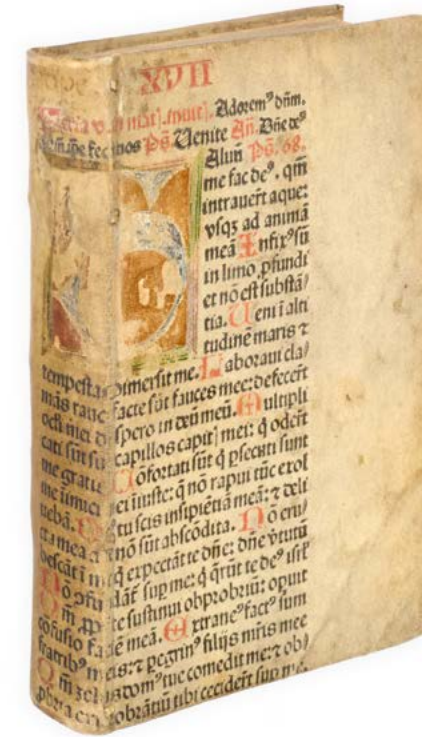 XVII
Feria v. ad mat. inuit. Adorem⁹ dn̄m.
fec nos Ps̄. Uenite An̄. Dn̄e de⁹
Aluū Ps̄. 68.
me fac de⁹. qm̄
intrauer̄t aque:
vsqꝫ ad animā
meā Infix⁹ sū
in limo ꝓfundi
et nō est substā/
tia. Ueni ī alti
tudinē maris ⁊
tempestas dimersit me. Laboraui cla/
mās rauc facte sūt fauces mee: defecer̄t
oc̄li mei d spero in deū meū. Multipli
cati sūt su capillos capitꝭ mei: q̇ oder̄t
me gratis Cōfortati sūt q̇ ꝑsecuti sunt
me inimici ei iniuste: q̄ nō rapui tūc exol
uebā. tu scis insipiētiā meā: ⁊ deli
cta mea a nō sūt abscōdita. Nō eru/
bescāt ī m q̇ expectāt te dn̄e: dn̄e v̓tutū
Nō ꝯfundāt̄ sup me: q̇ q̄rūt te de⁹ isrl̄
Qm̄ ꝓp te sustinui obprobriū: opuit
cōfusio faciē meā. Extrane⁹ fact⁹ sum
fratrib⁹ meis: ⁊ ꝑegrin⁹ filijs mr̄is mee
Qm̄ zelus dom⁹ tue comedit me: ⁊ ob/
ꝓbria ex obrātiū tibi cecider̄t sup me.